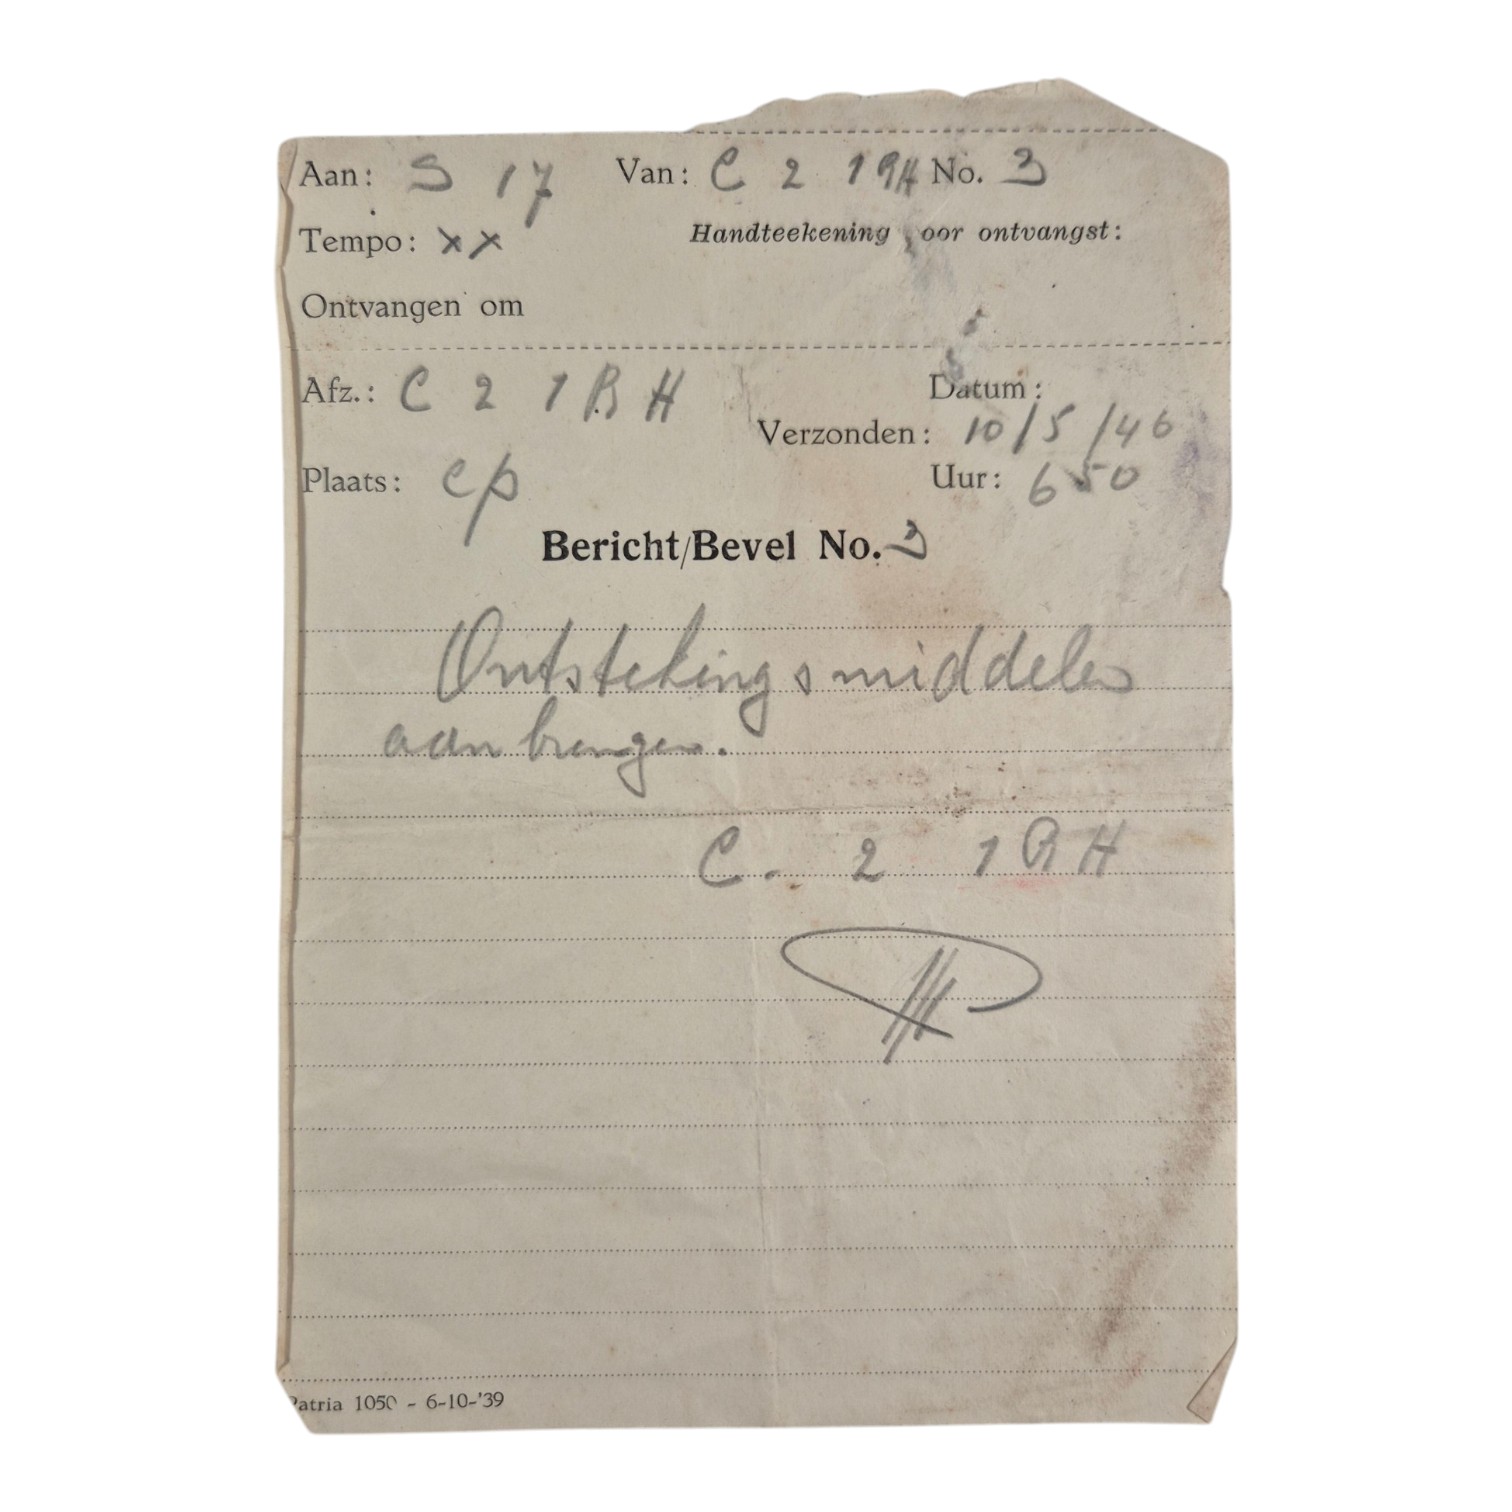 Aan: S 17 Van: C 2 1 RH No. 3
Tempo: xx Handteekening oor ontvangst:
Ontvangen om
Afz.: C 2 1 R H Datum:
Verzonden: 10/5/40
Plaats: cp Uur: 650
Bericht/Bevel No. 3
Ontstekingsmiddelen
aanbrengen.
C. 2 1 R H
Patria 1050 - 6-10-'39